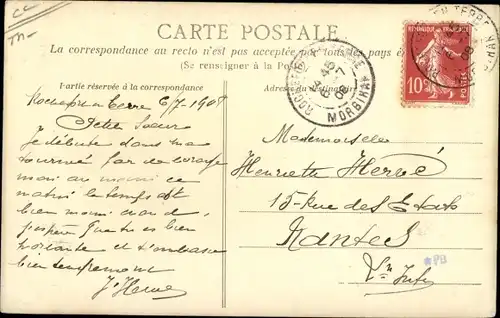 CC
CARTE POSTALE
La correspondance au recto n'est pas acceptée par tous les pays
(Se renseigner à la Poste)
Partie réservée à la correspondance
Adresse du destinataire
ROCHEFORT EN TERRE
MORBIHAN
EN TERRE
10c
POSTES
Rochefort en Terre 6/7-1908
Petite Soeur
Je débute dans ma
tournée par
mais au moins ce
matin le temps est
bien moins
que tu es bien
portante et t'embrasse
bien tendrement
J. Hervé
Mademoiselle
Henriette Hervé
15 rue des Etats
Nantes
Lre Infre
*PB